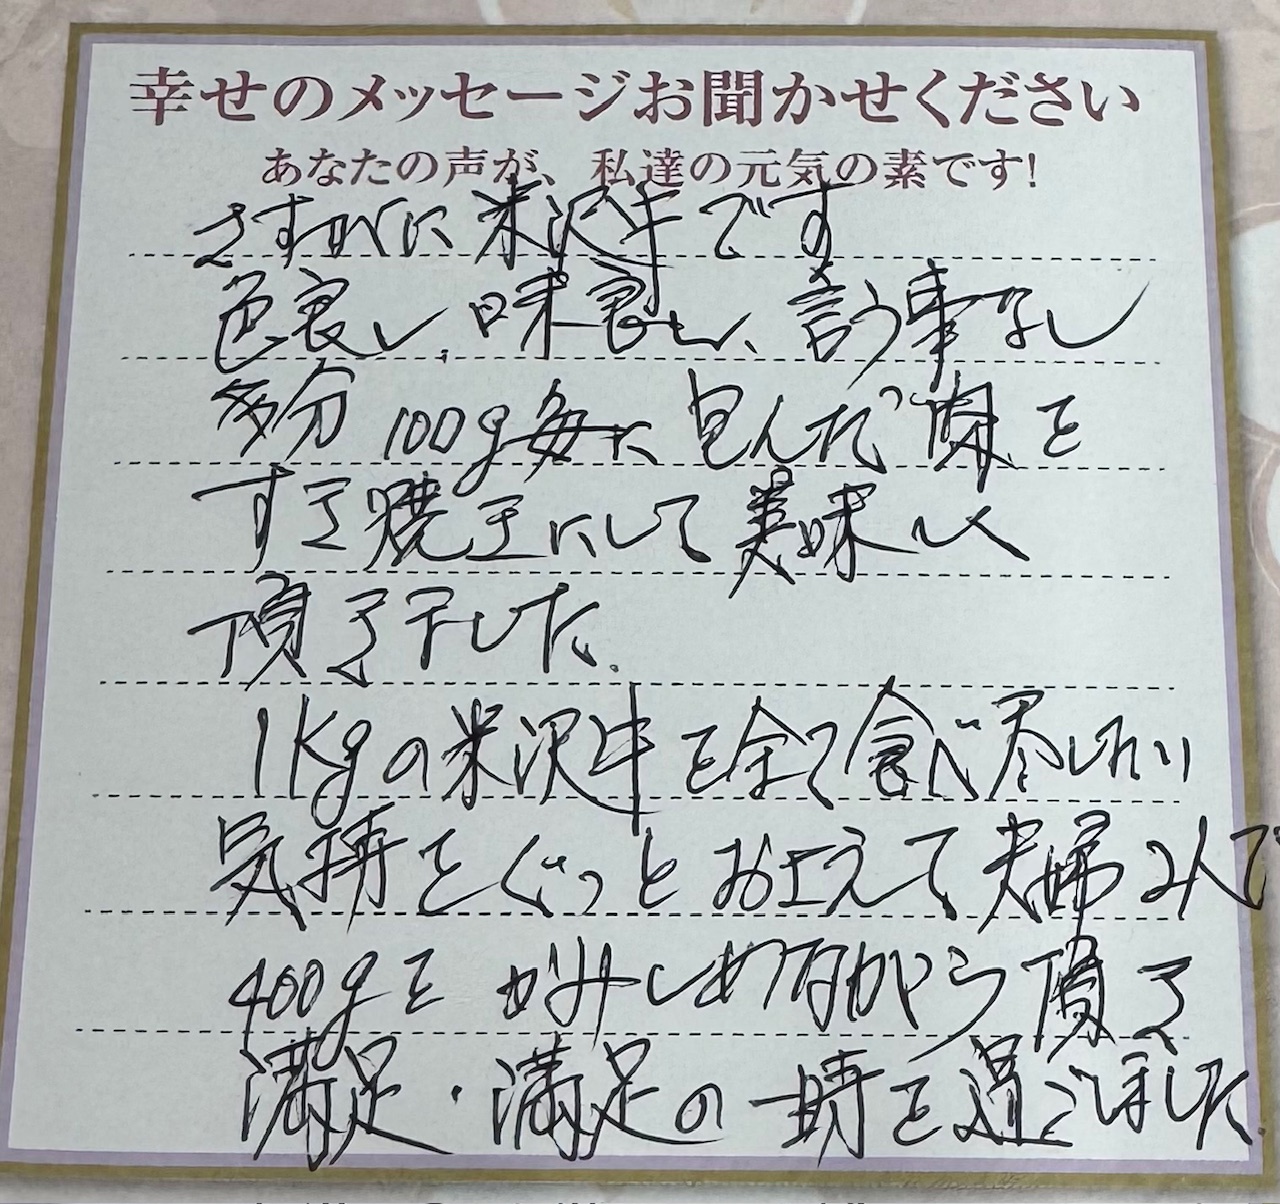 幸せのメッセージお聞かせください
あなたの声が、私達の元気の素です!
さすがに米沢牛です
色良し、味良し、言う事なし
多分100g毎に包んだ肉を
すき焼きにして美味しく
頂きました。
1Kgの米沢牛を全て食べ尽したい
気持をぐっとおさえて夫婦2人で
400gをかみしめながら頂き
満足・満足の一時を過ごしました。